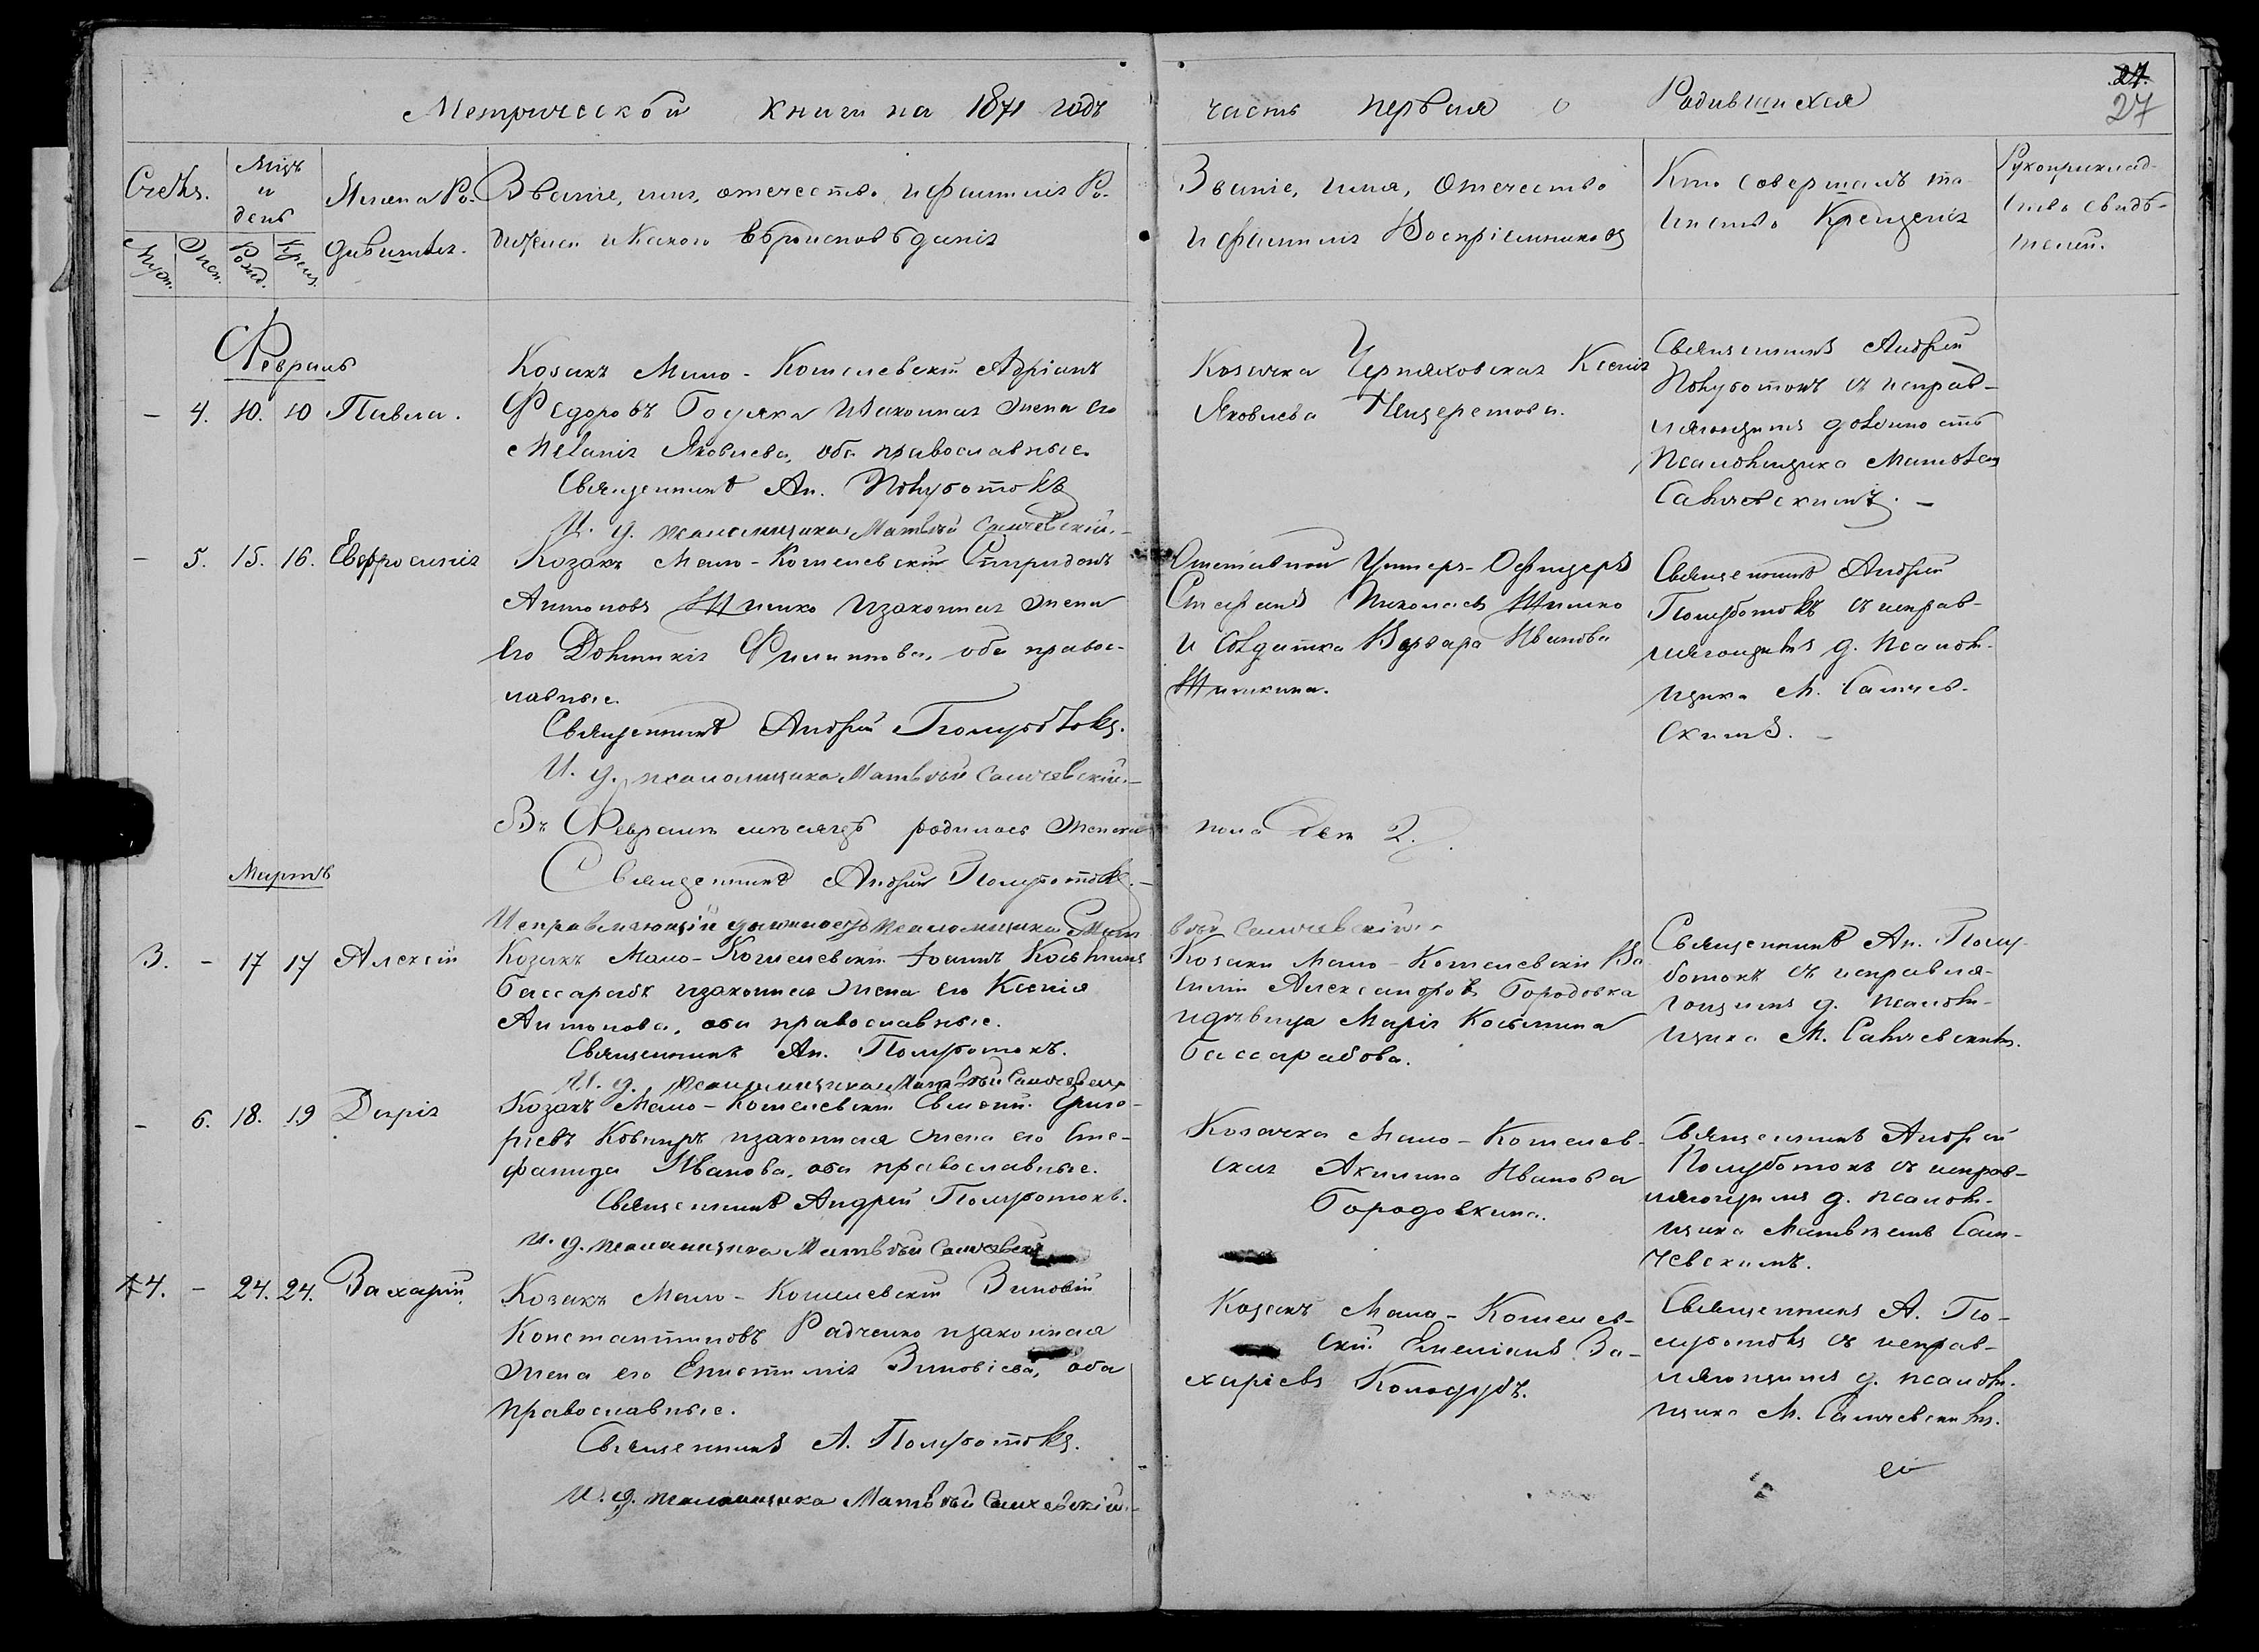 27.
27
Метрической книги на 1871 годъ часть первая о Родившихся
Счетъ.
Мѣсяцъ
и
день
Муж.
Жен.
Рожд.
Крещ.
Имена Ро-
дившихся.
Званіе, имя, отечество, и фамилія Ро-
дителей и Какого вѣроисповѣданія
Званіе, имя, Отечество
и фамилія Воспріемниковъ
Кто совершалъ та-
инство Крещенія
Рукоприклад-
ство свидѣ-
телей.
Февраль
- 4. 10. 10 Павла.
Козакъ Мало-Кошелевскій Адріанъ
Федоровъ и законная жена его
Меланія Яковлева, оба православные.
Священникъ Ан. Полуботокъ
И. д. псаломщика Матвѣй Саличевскій.-
Козачка Черняховская Ксенія
Яковлева
Священникъ Андрей
Полуботокъ съ исправ-
ляющимъ должность
Псаломщика Матвѣемъ
Саличевскимъ. -
- 5. 15. 16. Евфросинія
Козакъ Мало-Кошелевскій Спиридонъ
Антоновъ Шишко и законная жена
его Домникія Филиппова, оба правос-
лавные.
Священникъ Андрей Полуботокъ.
И. д. псаломщика Матвѣй Саличевскій.-
Отставной Унтеръ-Офицеръ
Стефанъ Николаевъ Шишко
и Солдатка Варвара Иванова
Шишкина.
Священникъ Андрей
Полуботокъ съ исправ-
ляющимъ д. псалом-
щика М. Саличев-
скимъ. -
Въ Февралѣ мѣсяцѣ родилось женска пола дѣтей 2.
Священникъ Андрей Полуботокъ.-
Исправляющій должность псаломщика Мат вѣй Саличевскій.-
Мартъ
3. - 17 17 Алексій
Козакъ Мало-Кошелевскій Іоаннъ Косьминъ
Бассарабъ и законная жена его Ксенія
Антонова, оба православные.
Священникъ Ан. Полуботокъ.
И. д. псаломщика Матвѣй Саличевскій
Козаки Мало-Кошелевскіи Ва-
силій Александровъ Городовка
и дѣвица Марія Косьмина
Бассарабова.
Священникъ Ан. Полу-
ботокъ съ исправля-
ющимъ д. псалом-
щика М. Саличевскимъ.
- 6. 18. 19 Дарія
Козакъ Мало-Кошелевскій Евменій Григо-
ріевъ Ковниръ и законная жена его Сте-
фанида Иванова, оба православные.
Священникъ Андрей Полуботокъ.
И. д. псаломщика Матвѣй Саличевскій
Козачка Мало-Кошелев-
ская Акилина Иванова
Городовкина.
Священникъ Андрей
Полуботокъ съ исправ-
ляющимъ д. псалом-
щика Матвѣемъ Сали-
чевскимъ.
4. - 24. 24. Захарій
Козакъ Мало-Кошелевскій Зиновій
Константиновъ Радченко и законная
жена его Епистимія Зиновіева, оба
православные.
Священникъ А. Полуботокъ.
И. д. псаломщика Матвѣй Саличевскій.-
Козакъ Мало-Кошелев-
скій Емеліанъ За-
харіевъ Колодубъ.
Священникъ А. По-
луботокъ съ исправ-
ляющимъ д. псалом-
щика М. Саличевскимъ.